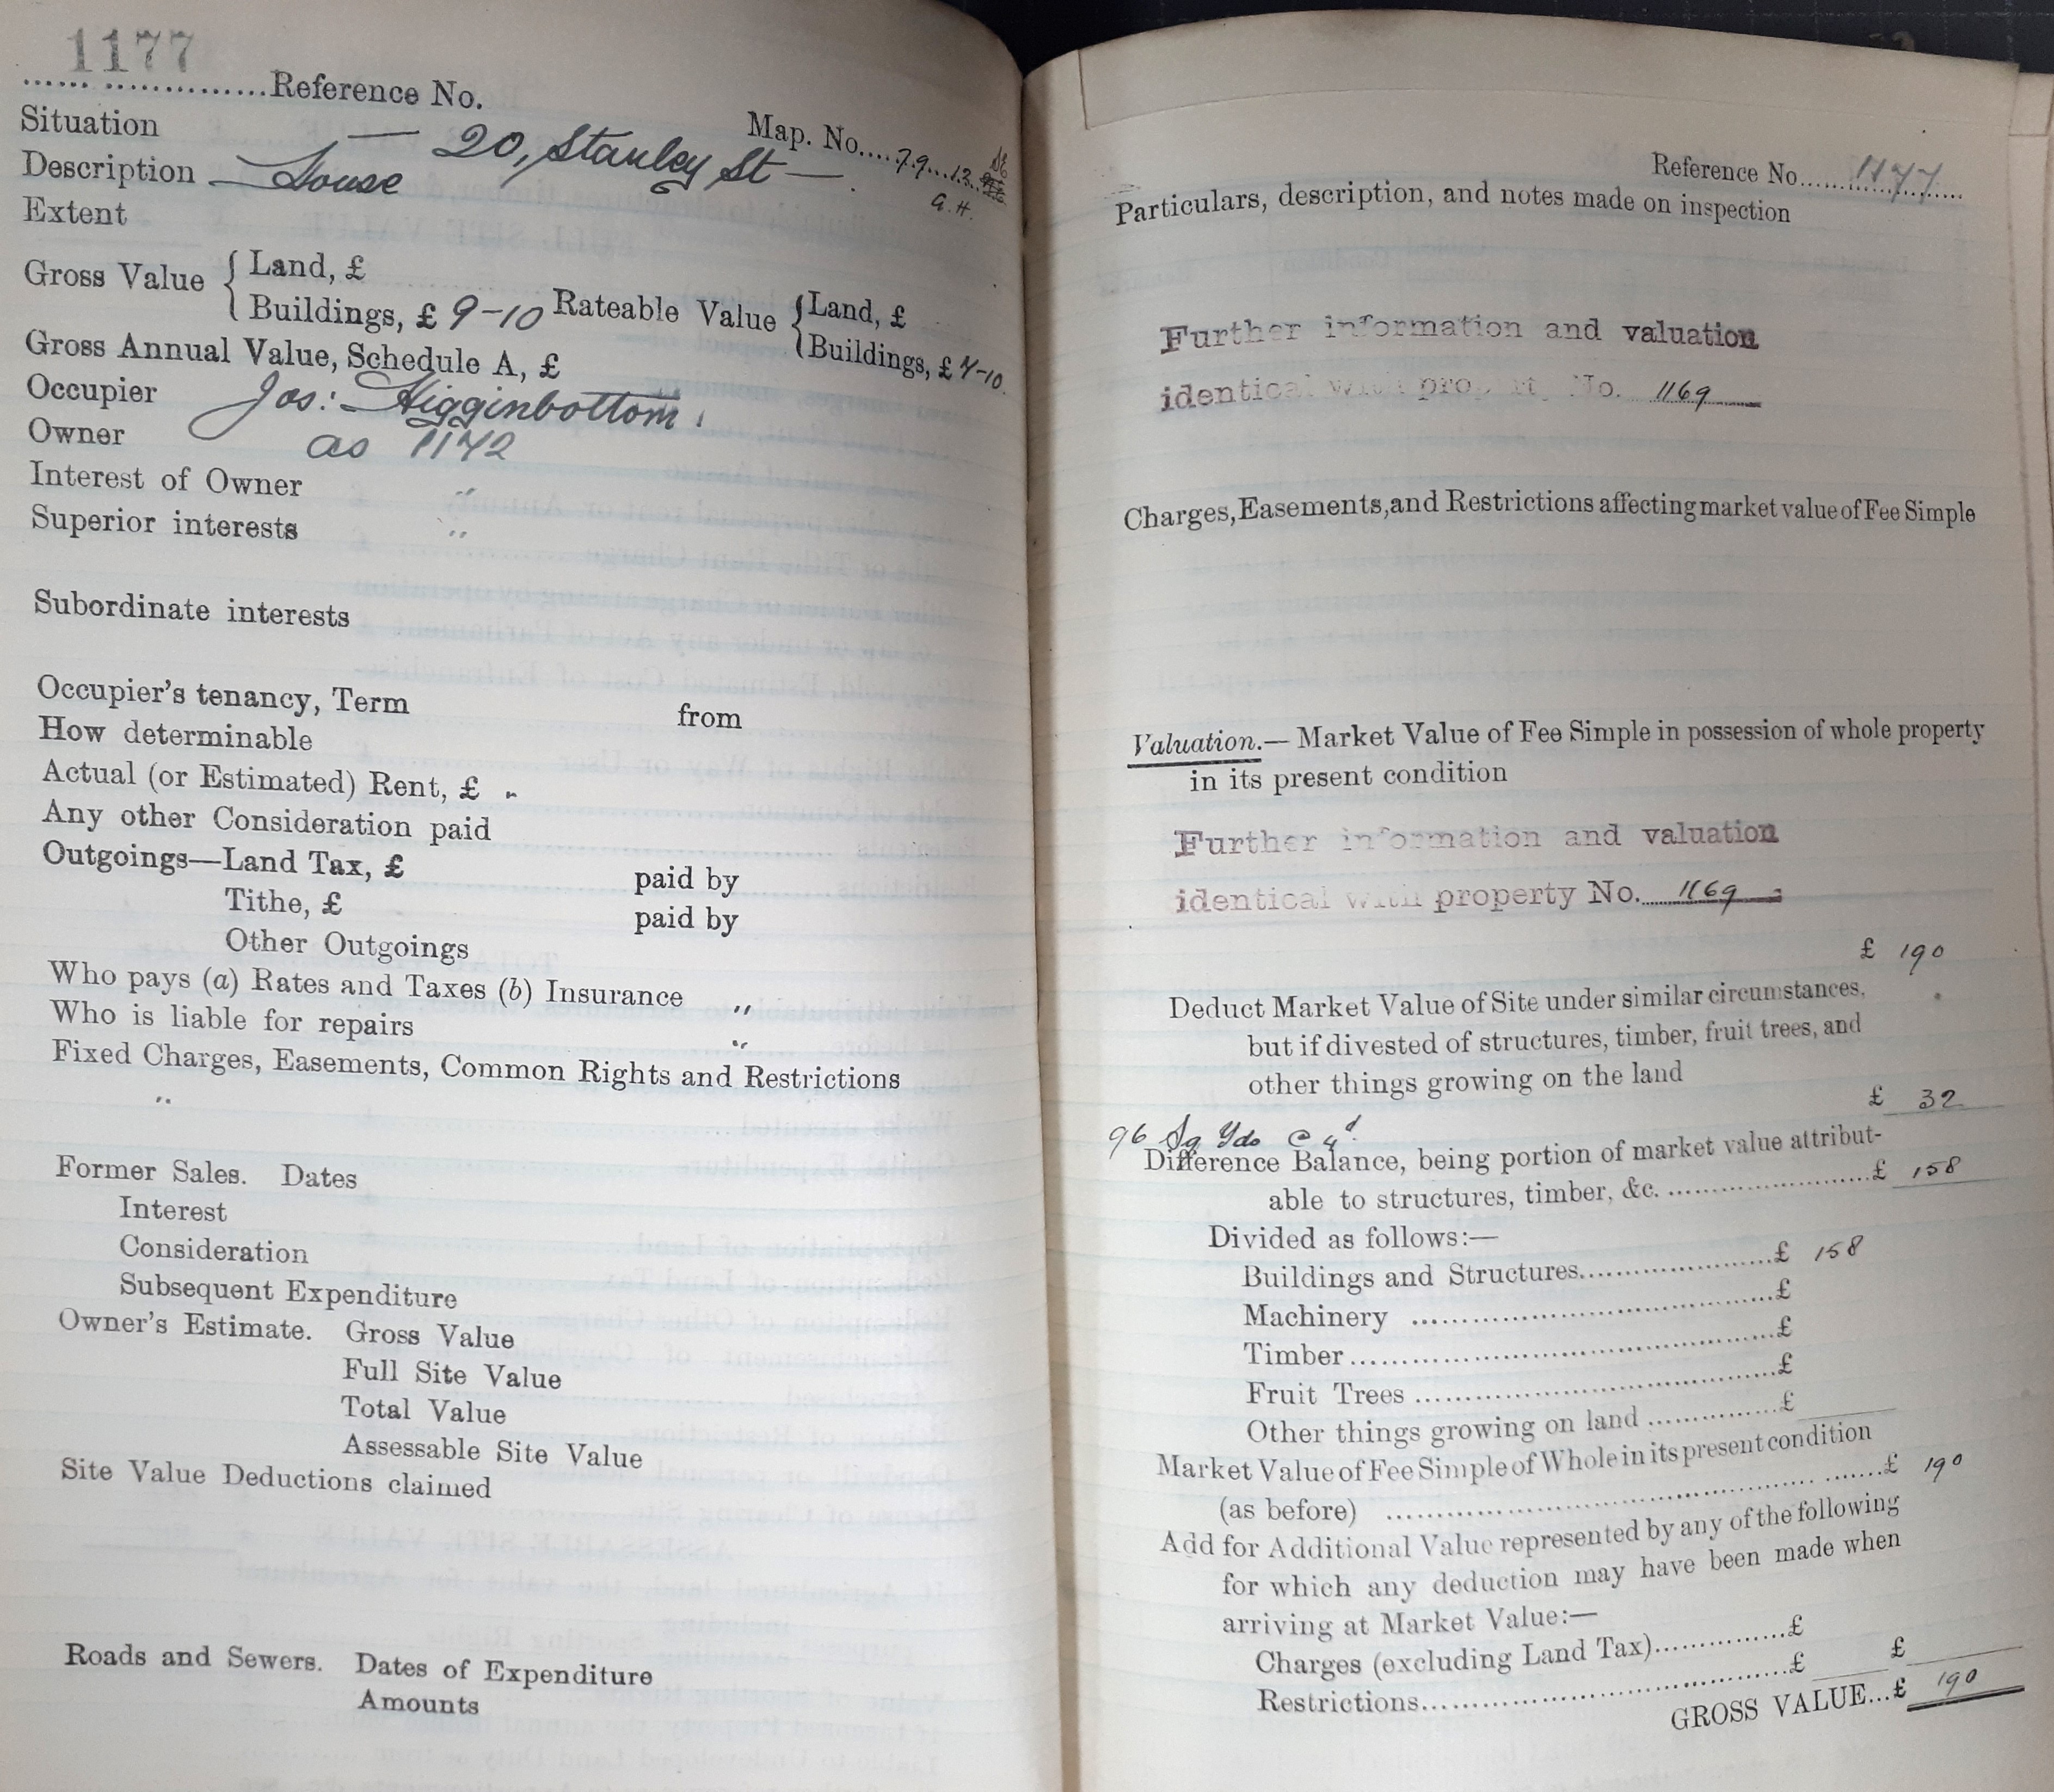 1177
...... ...............Reference No.
Map. No.....79...13.
G.H.
Situation — 20, Stanley St —.
Description — House
Extent
Gross Value { Land, £
Buildings, £ 9-10 Rateable Value { Land, £
Buildings, £ 7-10.
Gross Annual Value, Schedule A, £
Occupier Jos: Higginbottom.
Owner as 1172
Interest of Owner "
Superior interests "
Subordinate interests
Occupier's tenancy, Term from
How determinable
Actual (or Estimated) Rent, £ "
Any other Consideration paid
Outgoings—Land Tax, £ paid by
Tithe, £ paid by
Other Outgoings
Who pays (a) Rates and Taxes (b) Insurance "
Who is liable for repairs "
Fixed Charges, Easements, Common Rights and Restrictions
"
Former Sales. Dates
Interest
Consideration
Subsequent Expenditure
Owner's Estimate. Gross Value
Full Site Value
Total Value
Assessable Site Value
Site Value Deductions claimed
Roads and Sewers. Dates of Expenditure
Amounts
Reference No......1177......
Particulars, description, and notes made on inspection
Further information and valuation
identical with property No. 1169
Charges, Easements, and Restrictions affecting market value of Fee Simple
Valuation.— Market Value of Fee Simple in possession of whole property
in its present condition
Further information and valuation
identical with property No. 1169
£ 190
Deduct Market Value of Site under similar circumstances,
but if divested of structures, timber, fruit trees, and
other things growing on the land
£ 32
96 Sq Yds @ 4d.
Difference Balance, being portion of market value attribut-
able to structures, timber, &c. ..........................£ 158
Divided as follows:—
Buildings and Structures........................£ 158
Machinery ..........................................£
Timber.................................................£
Fruit Trees ..........................................£
Other things growing on land ................£
Market Value of Fee Simple of Whole in its present condition
(as before) ..........................................................£ 190
Add for Additional Value represented by any of the following
for which any deduction may have been made when
arriving at Market Value:—
Charges (excluding Land Tax)................£
Restrictions...........................................£ £
GROSS VALUE...£ 190